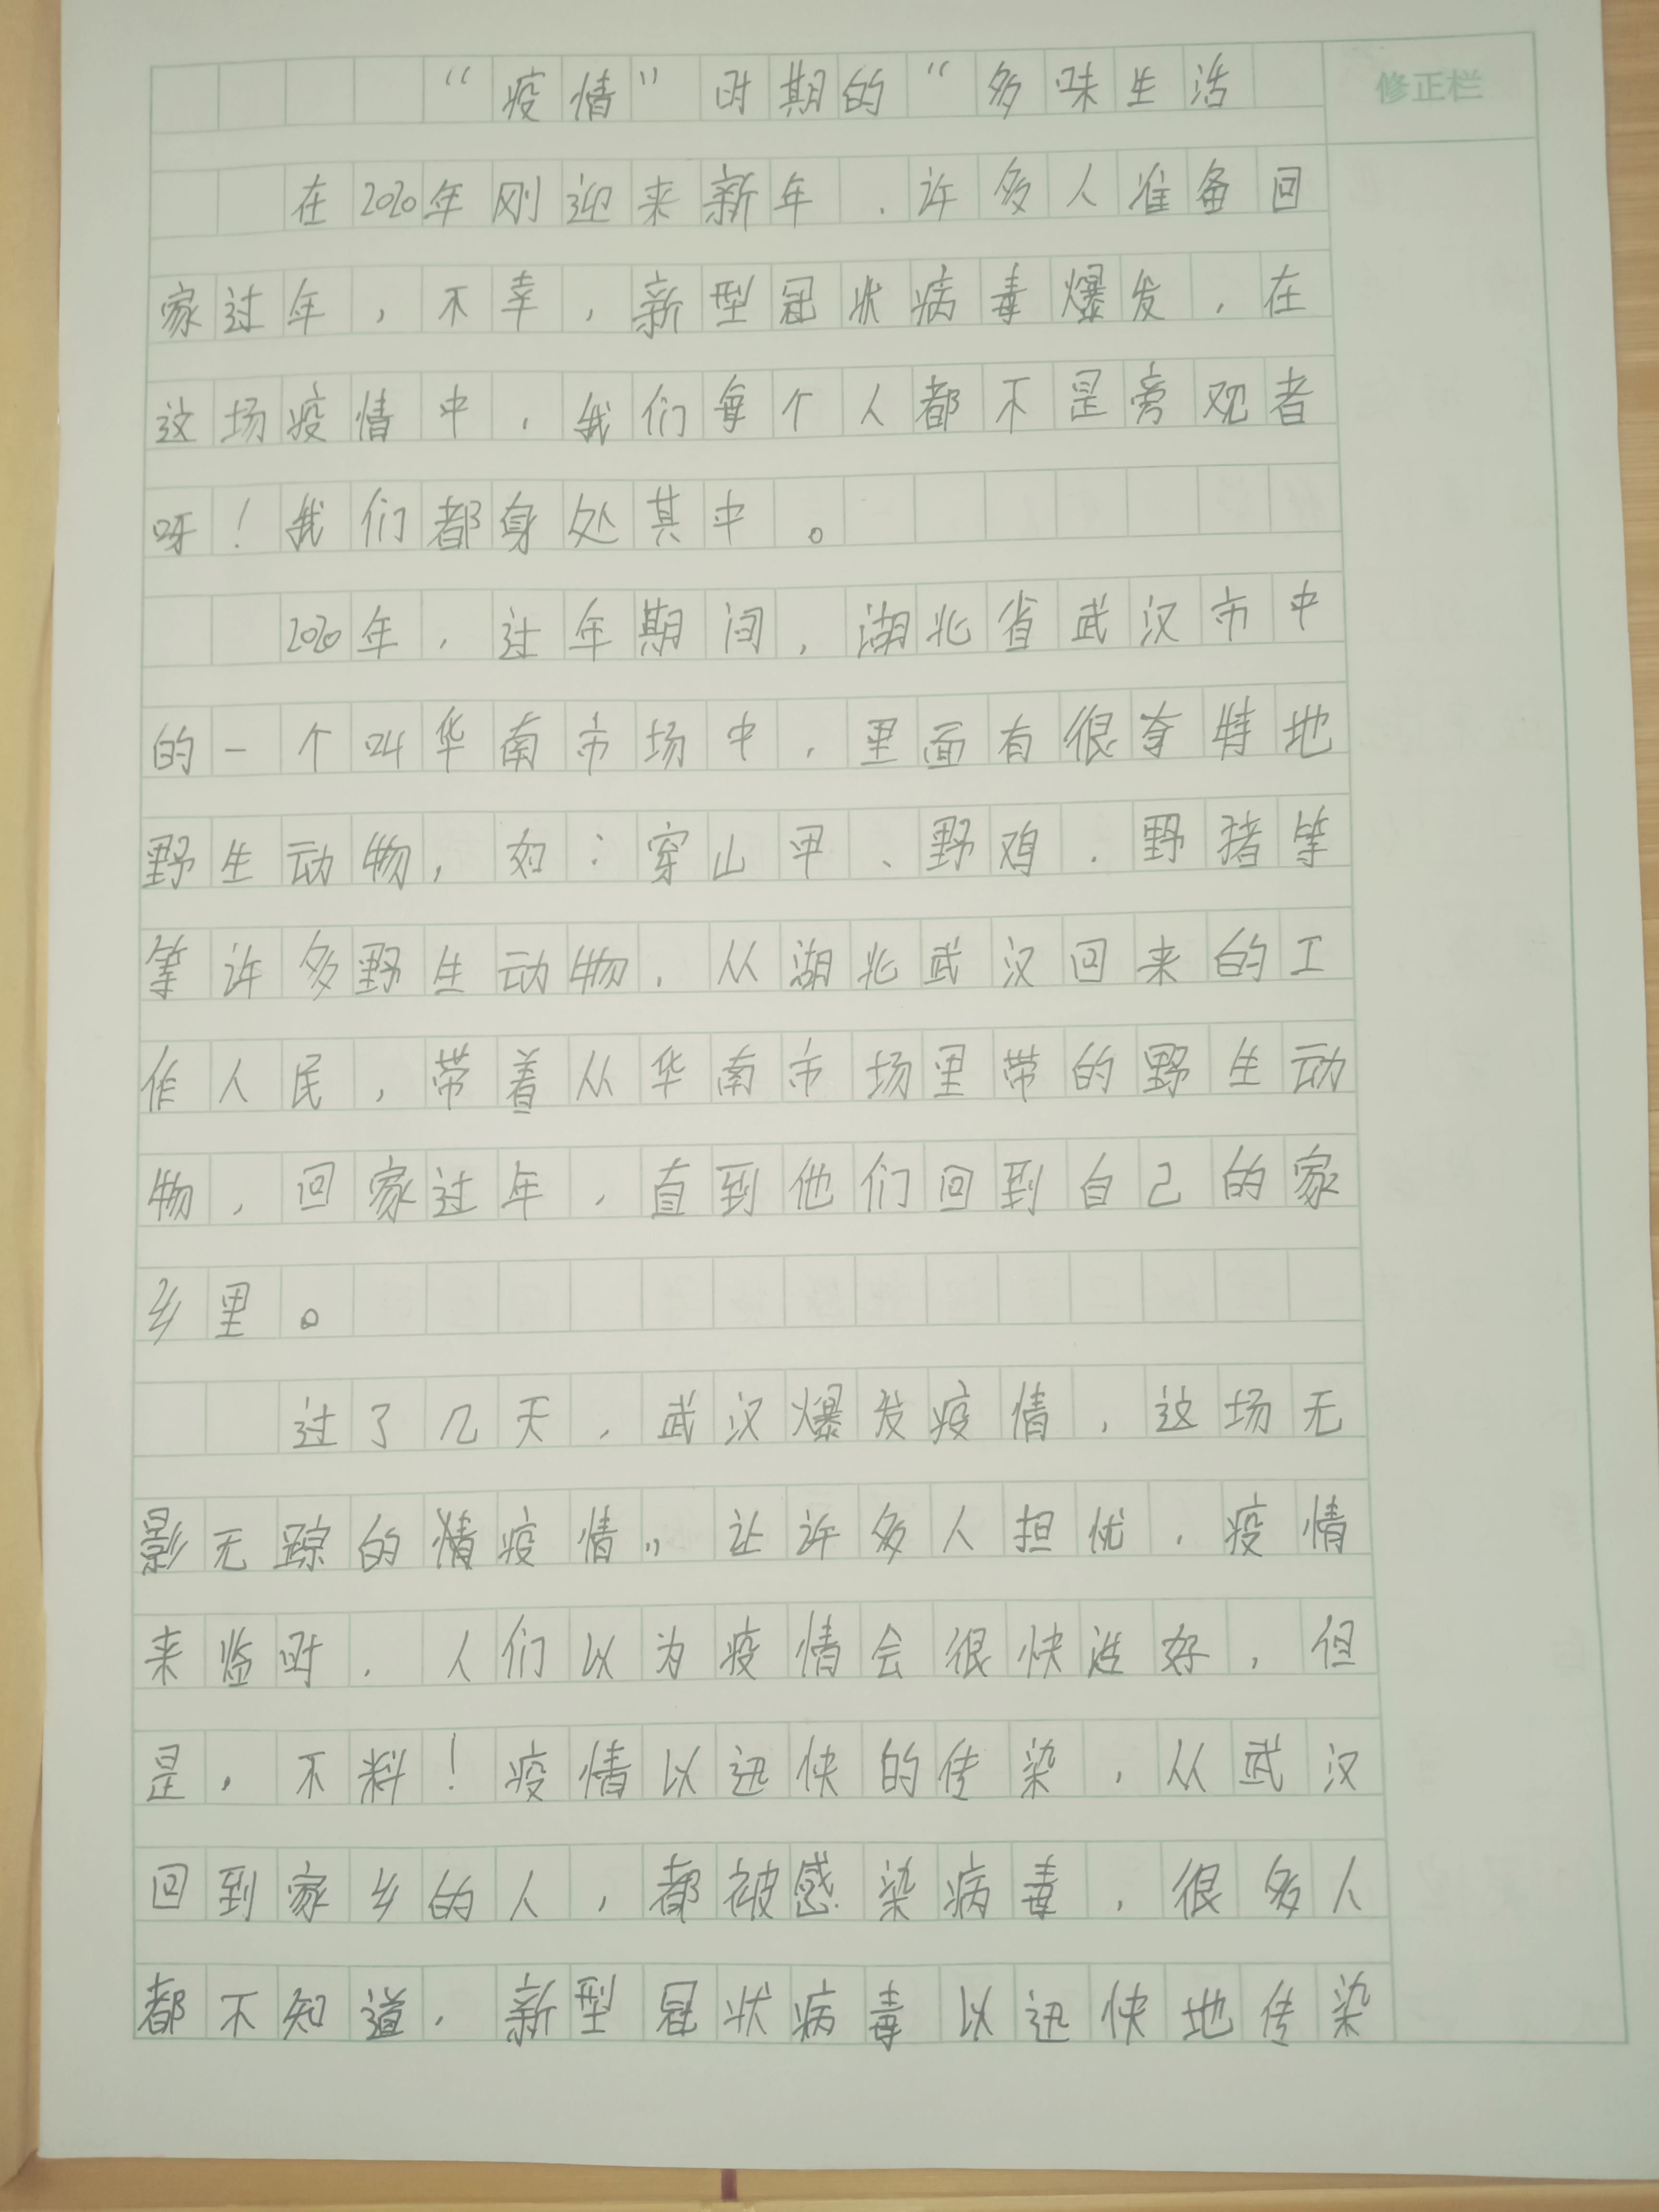 “疫情”时期的“多味生活
修正栏
在2020年刚迎来新年，许多人准备回
家过年，不幸，新型冠状病毒爆发，在
这场疫情中，我们每个人都不是旁观者
呀！我们都身处其中。
2020年，过年期间，湖北省武汉市中
的一个叫华南市场中，里面有很奇特地
野生动物，如：穿山甲、野鸡、野猪等
等许多野生动物，从湖北武汉回来的工
作人民，带着从华南市场里带的野生动
物，回家过年，直到他们回到自己的家
乡里。
过了几天，武汉爆发疫情，这场无
影无踪的疫情，让许多人担忧，疫情
来临时，人们以为疫情会很快进好，但
是，不料！疫情以迅快的传染，从武汉
回到家乡的人，都被感染病毒，很多人
都不知道，新型冠状病毒以迅快地传染